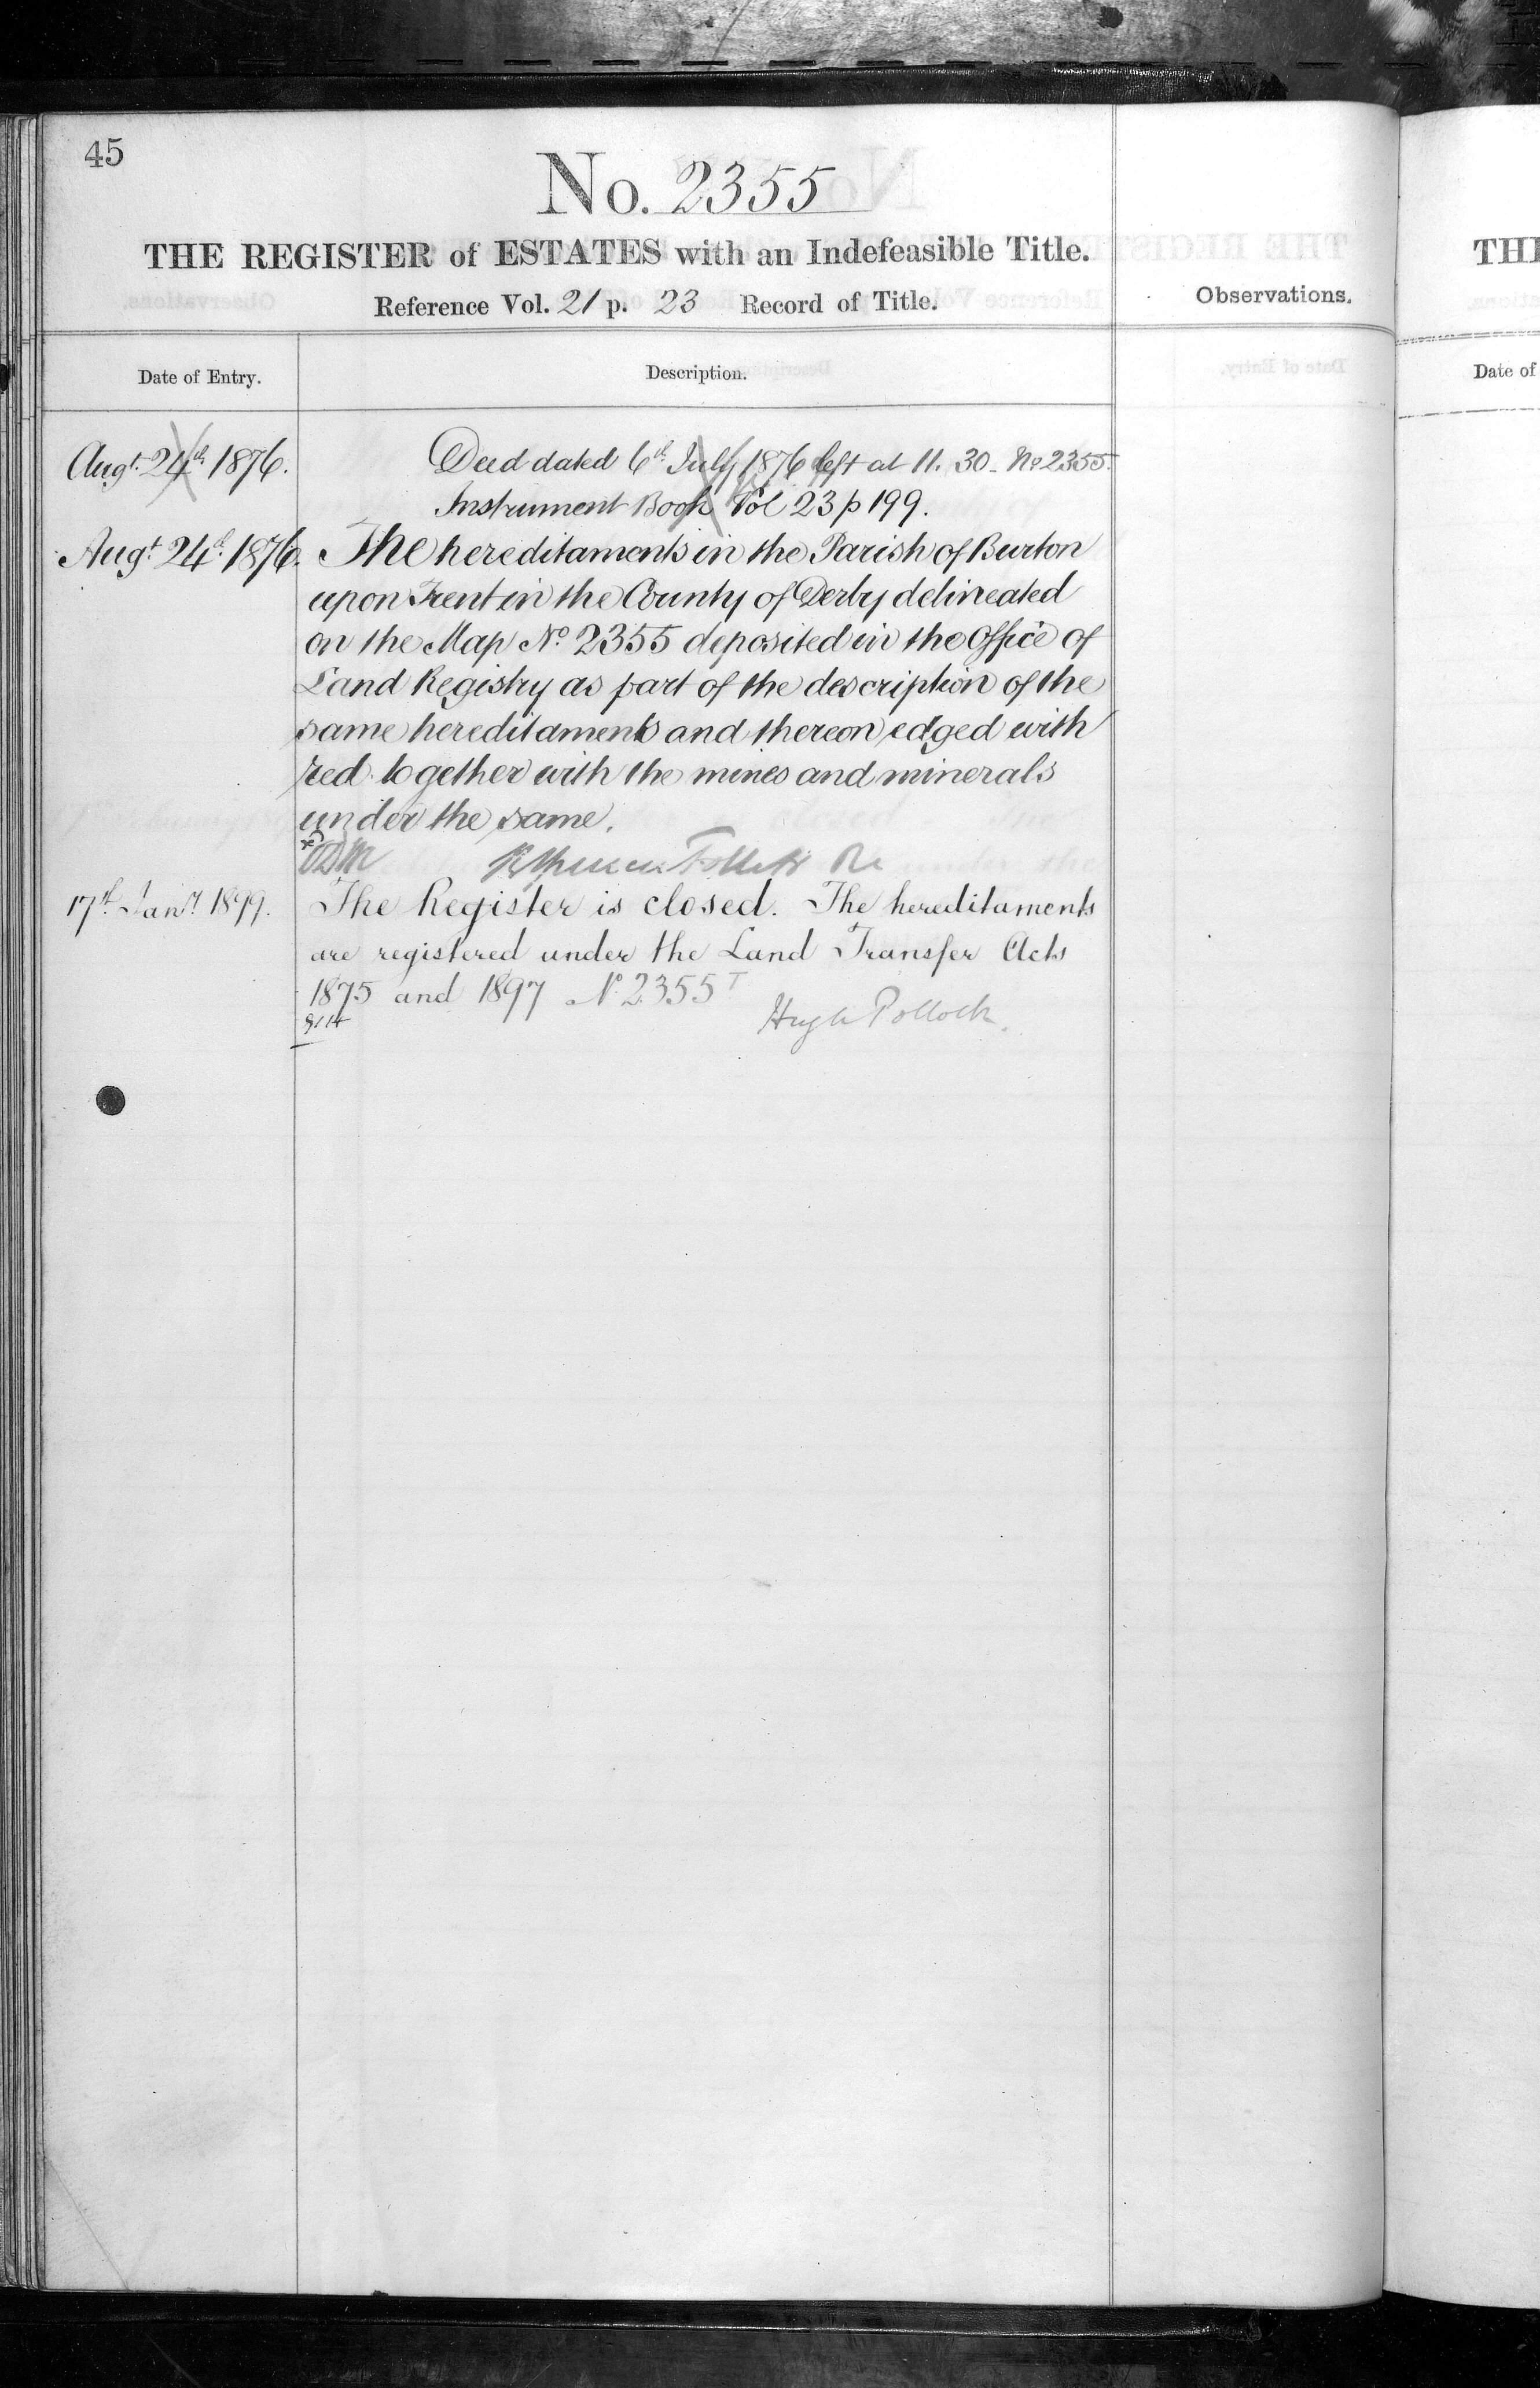 45
No. 2355
THE REGISTER of ESTATES with an Indefeasible Title.
Reference Vol. 21 p. 23 Record of Title.
Observations.
Date of Entry.
Description.
Augt. 24th 1876.
Deed dated 6th July 1876 left at 11.30 - No 2355.
Instrument Book Vol 23 p 199.
Augt 24th 1876.
The hereditaments in the Parish of Burton
upon Trent in the County of Derby delineated
on the Map No. 2355 deposited in the Office of
Land Registry as part of the description of the
same hereditaments and thereon edged with
red together with the mines and minerals
under the same.
Follett
17th Jany 1899.
The Register is closed. The hereditaments
are registered under the Land Transfer Acts
1875 and 1897 No. 2355 T
Hugh Pollock.
TH
Date of